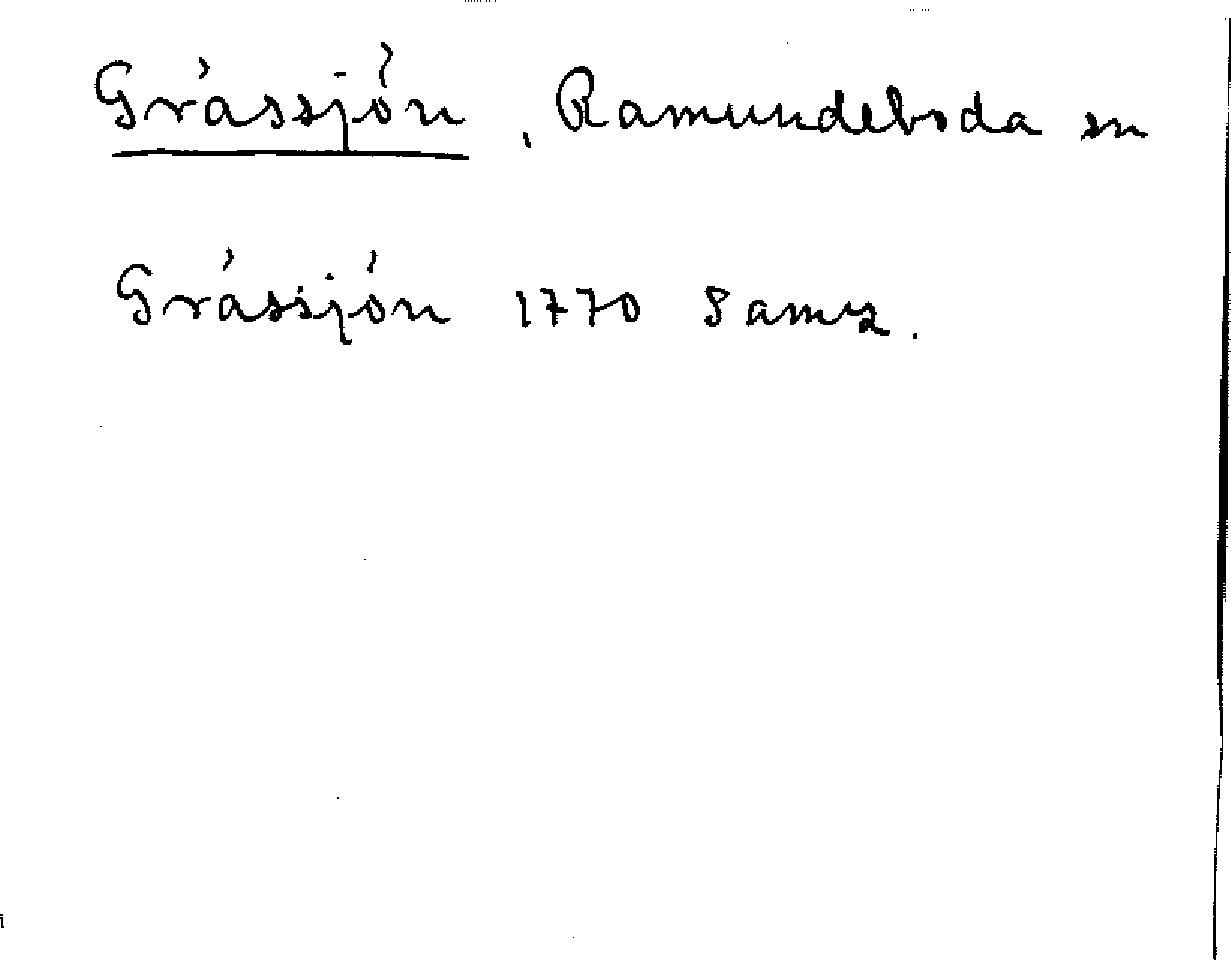 Gråssjön, Ramundeboda sn
Gråssjön 1770 Samz.